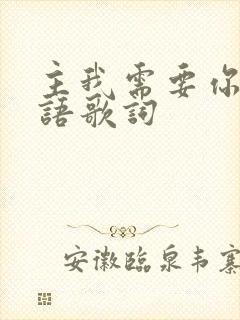 主我需要你
語歌詞
安徽臨泉韦寨